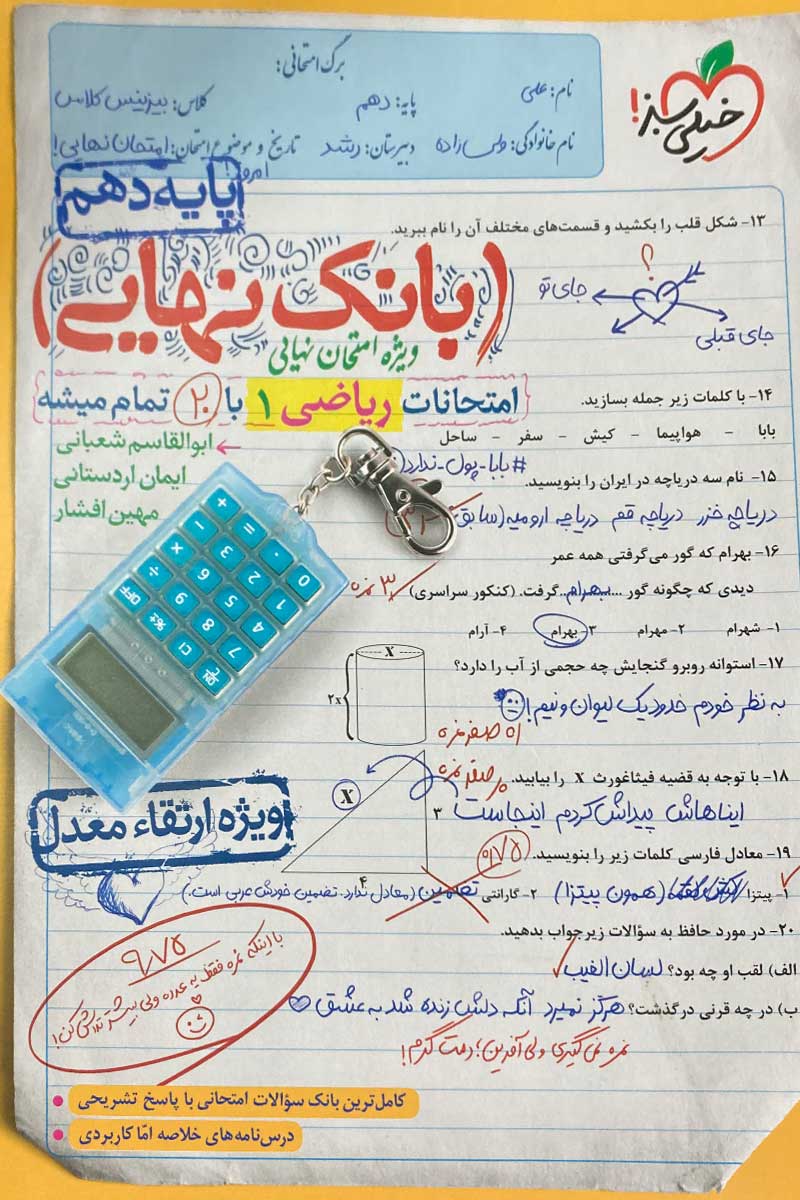 خیلی سبز!
برگ امتحانی:
نام: علی
پایه: دهم
کلاس: بیزینس کلاس
نام خانوادگی: ولی زاده
دبیرستان: رشد
تاریخ و موضوع امتحان: امتحان نهایی!
امروز!
پایه دهم
۱۳- شکل قلب را بکشید و قسمت‌های مختلف آن را نام ببرید.
؟
جای تو
جای قبلی
(بانک نهایی)
ویژه امتحان نهایی
امتحانات ریاضی ۱ با ۲۰ تمام میشه
ابوالقاسم شعبانی
ایمان اردستانی
مهین افشار
۱۴- با کلمات زیر جمله بسازید.
بابا - هواپیما - کیش - سفر - ساحل
#بابا_پول_ندارد
۱۵- نام سه دریاچه در ایران را بنویسید.
دریاچه خزر دریاچه قم دریاچه ارومیه (سابق)
۱۶- بهرام که گور می‌گرفتی همه عمر
دیدی که چگونه گور ...بهرام... گرفت. (کنکور سراسری)
۳ نمره
۱- شهرام ۲- مهرام ۳- بهرام ۴- آرام
۱۷- استوانه روبرو گنجایش چه حجمی از آب را دارد؟
x
۲x
به نظر خودم حدود یک لیوان و نیم!
اه صفر نمره
۱۸- با توجه به قضیه فیثاغورث x را بیابید.
صفر نمره
x
۳
۴
ایناهاش پیداش کردم اینجاست
ویژه ارتقاء معدل
۱۹- معادل فارسی کلمات زیر را بنویسید.
۰/۷۵
۱- پیتزا (همون پیتزا) ۲- گارانتی تضمین (معادل ندارد. تضمین خودش عربی است.)
۲۰- در مورد حافظ به سؤالات زیر جواب بدهید.
الف) لقب او چه بود؟ لسان الغیب
ب) در چه قرنی درگذشت؟ هرگز نمیرد آنکه دلش زنده شد به عشق
نمره نمی‌گیری ولی آفرین؛ دمت گرم!
۹/۷۵
با اینکه نمره فقط یه عدده ولی بیشتر تلاش کن!
کامل‌ترین بانک سؤالات امتحانی با پاسخ تشریحی
درس‌نامه‌های خلاصه امّا کاربردی
ON/C
CI
%±
OFF
7
8
9
÷
4
5
6
×
1
2
3
−
0
.
=
+